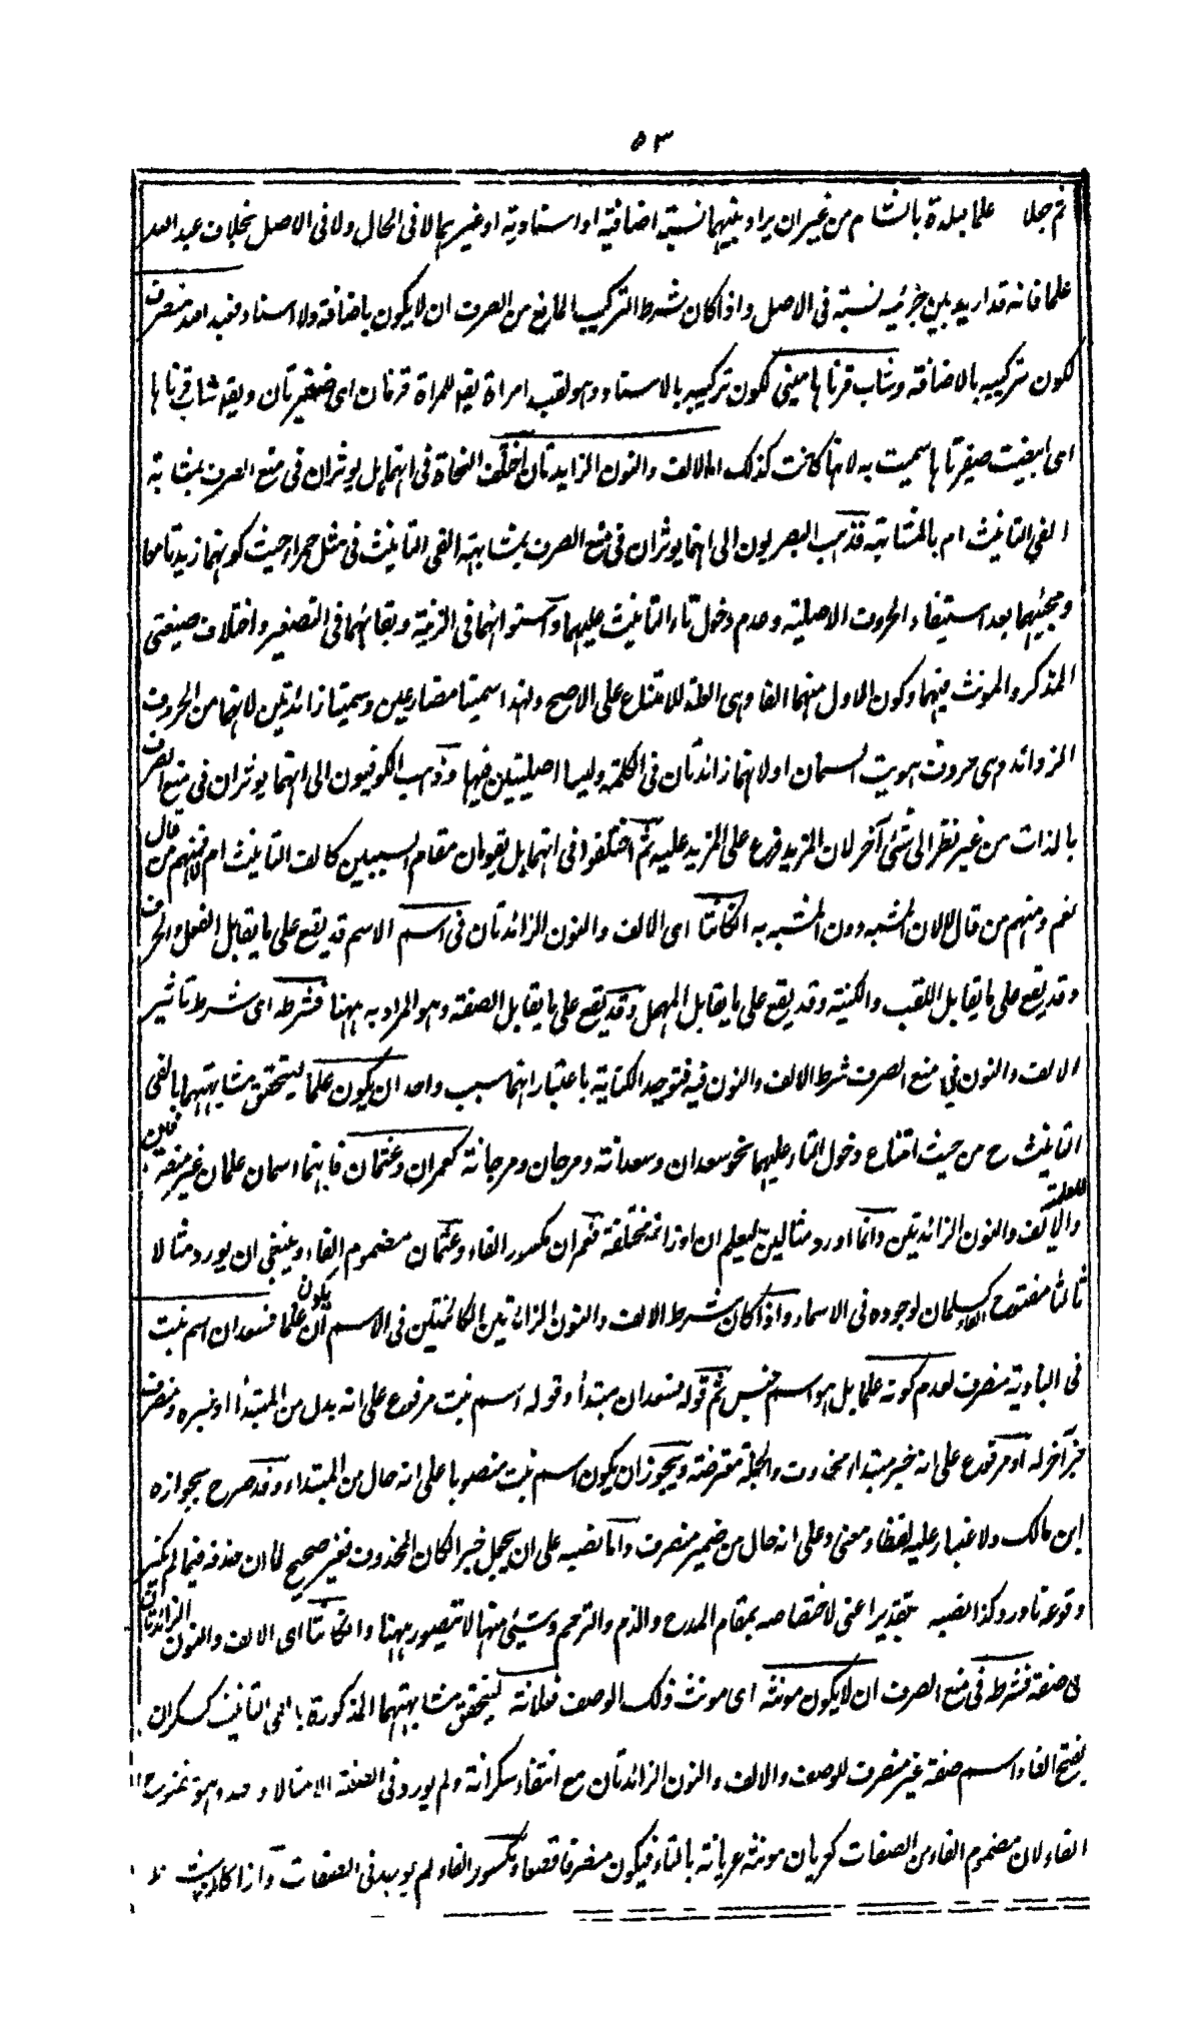 ٥٣
ثم جعلا علما لبلدة بالشام من غير ان يراد بينهما نسبة اضافية او اسنادية او غيرهما لا فى الحال ولا فى الاصل بخلاف عبد الله
علما فانه قد اريد بين جزئيه نسبة فى الاصل واذا كان شرط التركيب المانع من الصرف ان لا يكون باضافة ولا اسناد فعبد الله منصرف
لكون تركيبه بالاضافة وشاب قرناها مبنى لكون تركيبه بالاسناد وهو لقب امراة يقو للمراة قرنان اى ضفيرتان ويقو شاب قرناها
اى ابيضت ضفيرتاها سميت به لانها كانت كذلك اما الالف والنون الزايدتان اختلف النحاة فى انهما هل يوثران فى منع الصرف بمشابهة
الفى التانيث ام بالمشابهة فذهب البصريون الى انهما يوثران فى منع الصرف بمشابهة الفى التانيث فى مثل حمراء حيث كونهما زيدتا معا
ومجيئهما بعد استيفاء الحروف الاصلية وعدم دخول تاء التانيث عليهما واستوائهما فى الزنة وبقائهما فى التصغير واختلاف صيغتى
المذكر والمونث فيهما وكون الاول منهما الفا وهى العلة للامتناع على الاصح ولهذا سميتا مضارعتين وسميتا زائدتين لانهما من الحروف
الزوائد وهى حروف هويت السمان او لانهما زائدتان فى الكلمة وليسا اصليتين فيها وذهب الكوفيون الى انهما يوثران فى منع الصرف
بالذات من غير نظر الى شئ آخر لان المزيد فرع على المزيد عليه ثم اختلفوا فى انهما هل يقومان مقام السببين كالف التانيث ام لا فمنهم من قال
نعم ومنهم من قال لا لان المشبه دون المشبه به الكائنتا اى الالف والنون الزائدتان فى اسم الاسم قد يقع على ما يقابل الفعل والحرف
وقد يقع على ما يقابل اللقب والكنية وقد يقع على ما يقابل المهمل وقد يقع على ما يقابل الصفة وهو المراد به ههنا فشرطه اى شرط تاثير
الالف والنون فى منع الصرف شرط الالف والنون فيه فتوحيد الكناية باعتبار انهما سبب واحد ان يكون علما ليتحقق مشابهتهما بالفى
التانيث ح من حيث امتناع دخول التاء عليهما نحو سعدان وسعدانة ومرجان ومرجانة كعمران وعثمان فانهما اسمان علمان غير منصرفين
للعلمية والالف والنون الزائدتين وانما اورد مثالين ليعلم ان اوزانه مختلفة فعمران مكسور الفاء وعثمان مضموم الفاء وينبغى ان يورد مثالا
ثالثا مفتوح الفاء كسلمان لوجوده فى الاسماء واذا كان شرط الالف والنون الزائدتين الكائنتين فى الاسم ان يكون علما فسعدان اسم نبت
فى البادية منصرف لعدم كونه علما بل هو اسم جنس ثم قوله فسعدان مبتدأ وقوله اسم نبت مرفوع على انه بدل من المبتدأ او خبره ومنصرف
خبر آخر له او مرفوع على انه خبر مبتداء محذوف والجملة معترضة ويجوز ان يكون اسم نبت منصوبا على انه حال من المبتداء وقد صرح بجوازه
ابن مالك ولا غبار عليه لفظا ومعنى وعلى انه حال من ضمير منصرف واما نصبه على ان يجعل خبرا لكان المحذوف فغير صحيح لما ان حذفه فيما لم يكثر
وقوعه نادر وكذا نصبه بتقدير اعنى لاختصاصه بمقام المدح والذم والترحم وشيئ منها لا تتصور ههنا واكائنتا اى الالف والنون الزائدتان
فى صفة فشرطه فى منع الصرف ان لا يكون مونثه اى مونث ذلك الوصف فعلانة ليتحقق مشابهتهما المذكورة بالفى التانيث كسكران
بفتح الفاء اسم صفة غير منصرف للوصف والالف والنون الزائدتان مع انتفاء سكرانة ولم يورد فى الصفة الا مثالا وحده وهو مفتوح
الفاء لان مضموم الفاء من الصفات كعريان مونثه عريانة بالتاء فيكون منصرفا قطعا ومكسور الفاء لم يوجد فى الصفات واذا كان